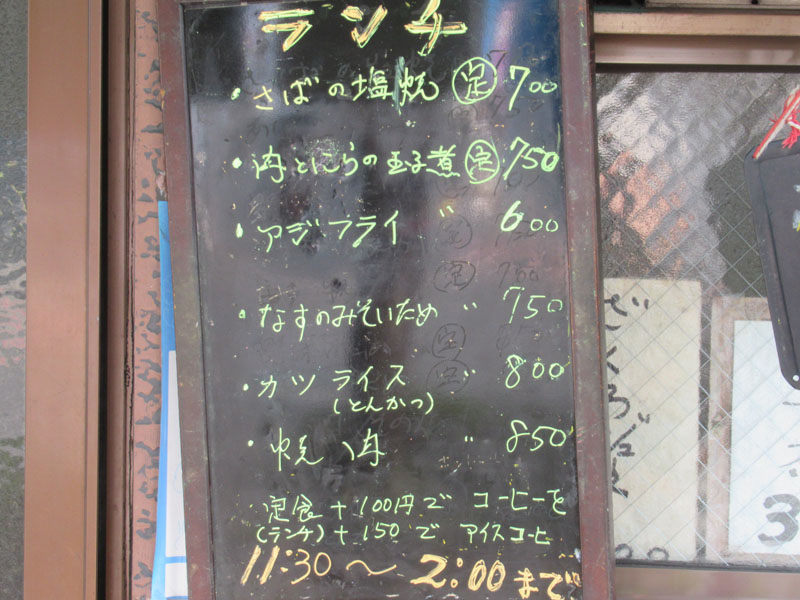 ランチ
・さばの塩焼 定 700
・肉とにらの玉子煮 定 750
・アジフライ 〃 600
・なすのみそいため 〃 750
・カツライス 〃 800
(とんかつ)
・焼肉 〃 850
定食+100円で コーヒーを
(ランチ)+150で アイスコーヒー
11:30〜2:00まで